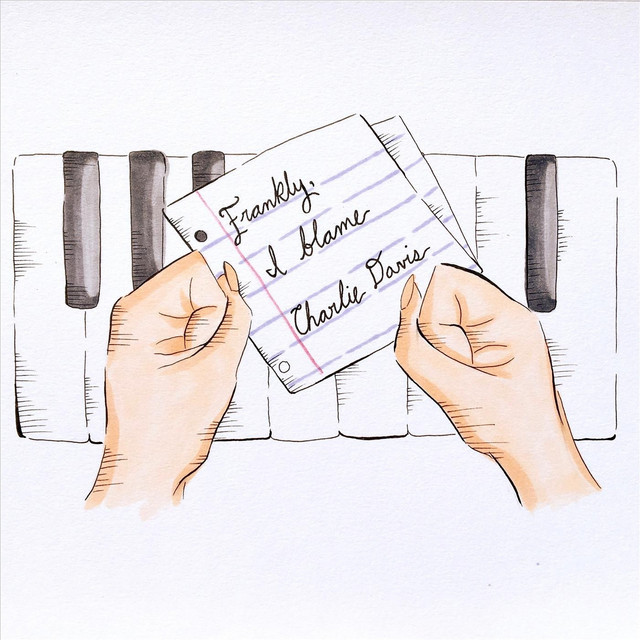 Frankly,
I blame
Charlie Davis